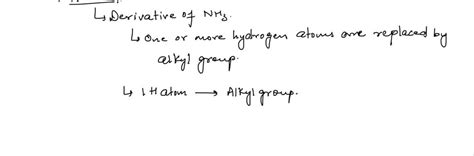 ↳ Derivative of NH3.
↳ One or more hydrogen atoms are replaced by
alkyl group.
↳ 1 H atom ⟶ Alkyl group.